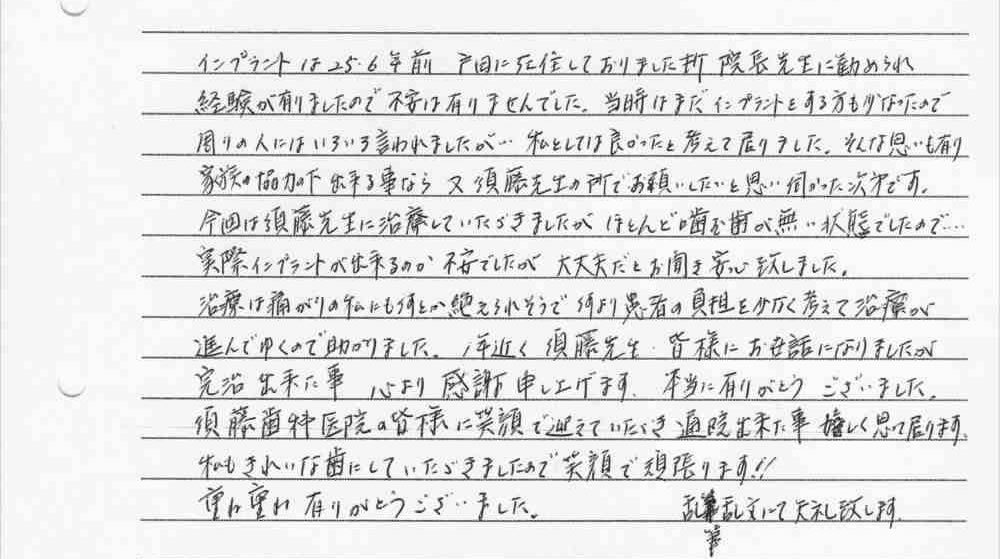 インプラントは25.6年前 戸田に在住しておりました折 院長先生に勧められ
経験が有りましたので不安は有りませんでした。当時はまだインプラントをする方も少なかったので
周りの人にはいろいろ言われましたが… 私としては良かったと考えて居りました。そんな思いも有り
家族の協力の下 出来る事なら 又 須藤先生の所でお願いしたいと思い 伺かった次第です。
今回は須藤先生に治療していただきましたが ほとんど歯が無い状態でしたので……
実際インプラントが出来るのか 不安でしたが 大丈夫だとお聞き安心致しました。
治療は痛がりの私にも何とか絶えられそうで 何より患者の負担を少なく考えて治療が
進んでゆくので助かりました。1年近く 須藤先生・皆様にお世話になりましたが
完治出来た事 心より 感謝申し上げます。本当に有りがとうございました。
須藤歯科医院の皆様に笑顔で迎えていただき 通院出来た事 嬉しく思って居ります。
私もきれいな歯にしていただきましたので笑顔で頑張ります!!
重ね重ね 有りがとうございました。 乱筆乱文にて失礼致します。